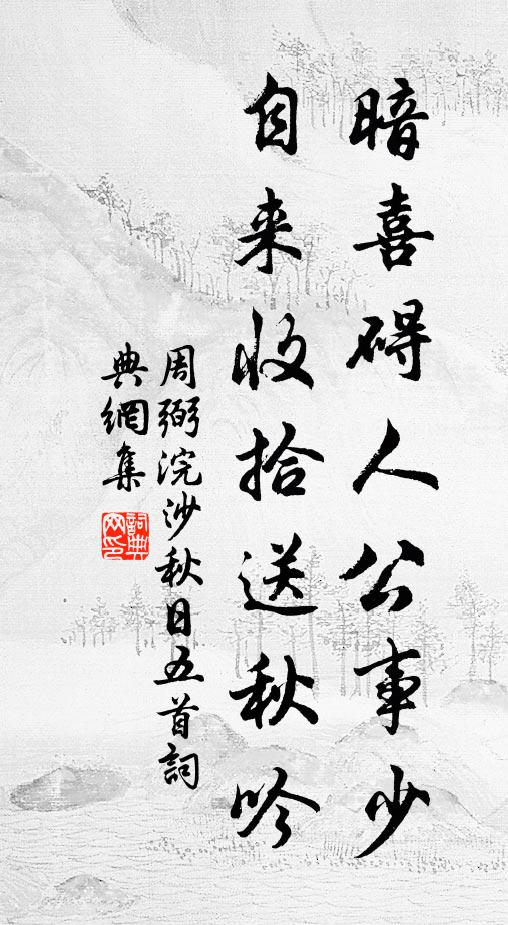 暗喜碍人公事少
自来收拾送秋吟
周弼浣沙秋日五首詞
典網集
詞典網印